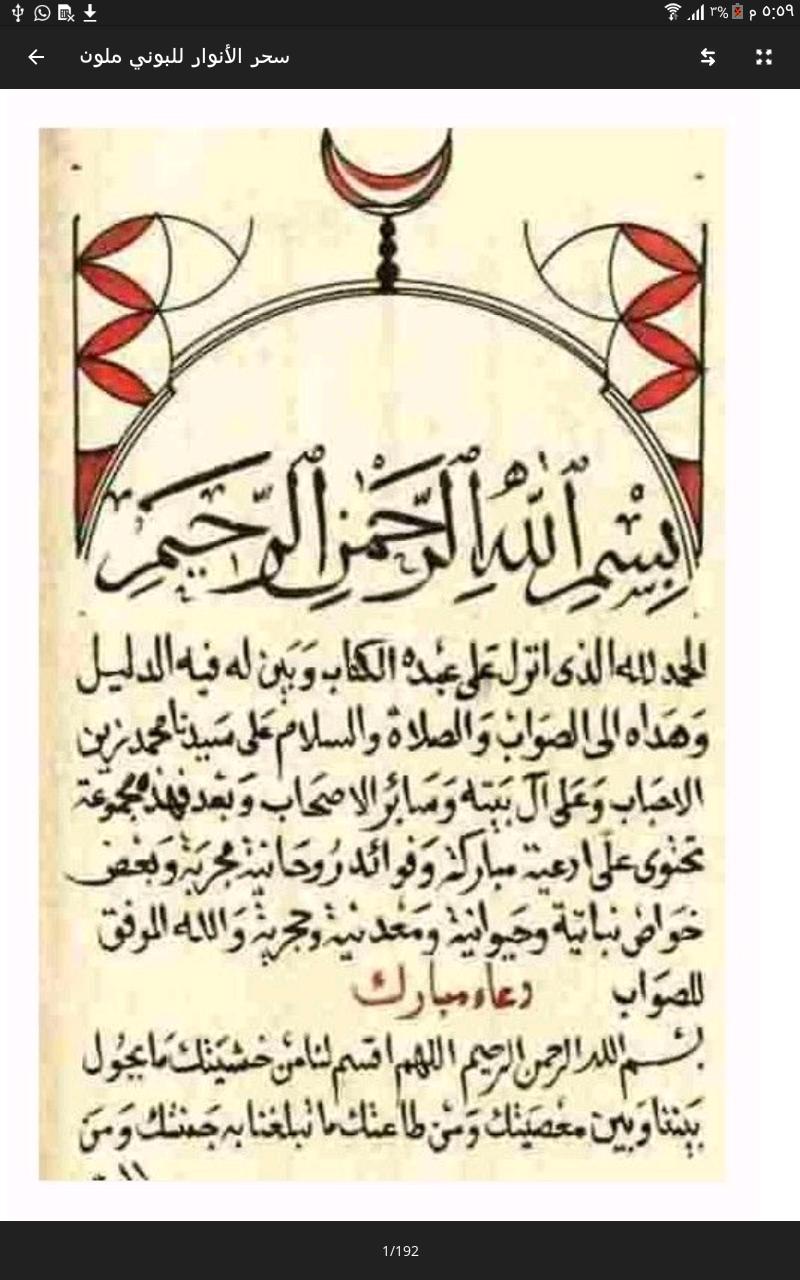 ٣% ٥:٥٩ م
سحر الأنوار للبوني ملون
بِسْمِ ٱللَّهِ ٱلرَّحْمَٰنِ ٱلرَّحِيمِ
الحمد لله الذى انزل على عبده الكتاب وَبَيَّن له فيه الدليل
وَهَداه الى الصوَاب وَالصلاة والسلام على سَيدنا محمد زين
الاحباب وَعَلى آل بَيته وَسَائر الاصحَاب وَبَعد فهذه مجموعة
تحتوى على ادعية مباركة وَفوائد رُوحَانية مجربة وَبعض
خوَاص نباتية وحيوانية ومَعْدنية وحجرية وَالله الموفق
للصوَاب دعاء مبارك
بسم الله الرحمن الرحيم اللهم اقسم لنا منْ خشيَتك مَا يحول
بَيننا وَبين معْصيَتك وَمنْ طاعتك ما تبلغنا به جَنتك وَمنَ
1/192